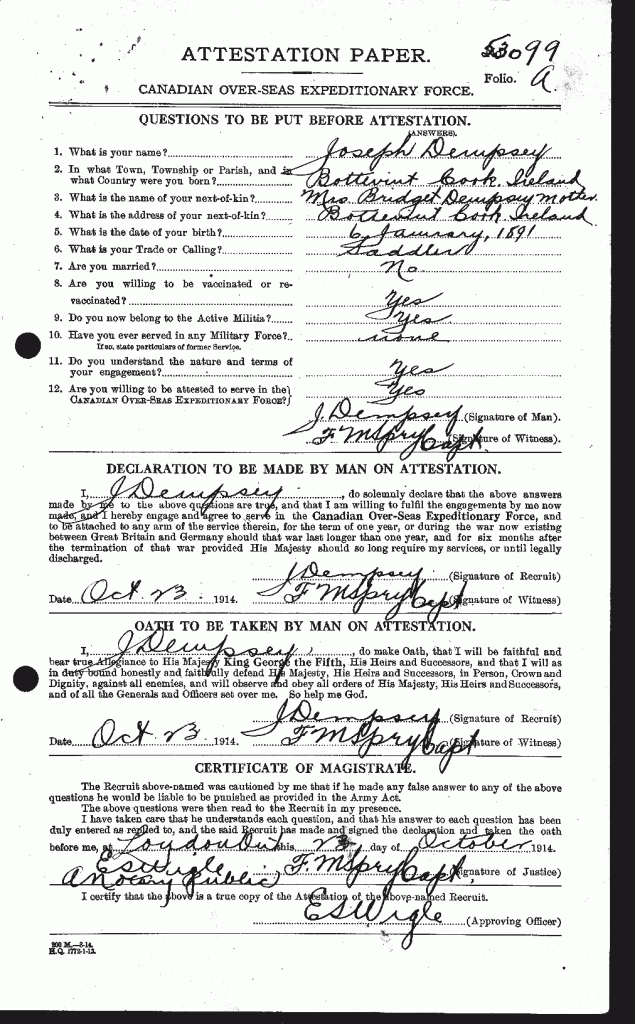 ATTESTATION PAPER.
53099
Folio. A.
CANADIAN OVER-SEAS EXPEDITIONARY FORCE.
QUESTIONS TO BE PUT BEFORE ATTESTATION.
(ANSWERS).
1. What is your name? Joseph Dempsey
2. In what Town, Township or Parish, and in
what Country were you born? Bottevint Cook. Ireland
3. What is the name of your next-of-kin? Mrs. Bridget Dempsey Mother.
4. What is the address of your next-of-kin? Bottevint Cook. Ireland
5. What is the date of your birth? 6 January, 1891
6. What is your Trade or Calling? Saddler
7. Are you married? No
8. Are you willing to be vaccinated or re-
vaccinated? Yes
9. Do you now belong to the Active Militia? Yes
10. Have you ever served in any Military Force? none
If so, state particulars of former Service.
11. Do you understand the nature and terms of
your engagement? Yes
12. Are you willing to be attested to serve in the
CANADIAN OVER-SEAS EXPEDITIONARY FORCE? Yes
J. Dempsey (Signature of Man).
F M Spry Capt. (Signature of Witness).
DECLARATION TO BE MADE BY MAN ON ATTESTATION.
I, J Dempsey, do solemnly declare that the above answers
made by me to the above questions are true, and that I am willing to fulfil the engagements by me now
made, and I hereby engage and agree to serve in the Canadian Over-Seas Expeditionary Force, and
to be attached to any arm of the service therein, for the term of one year, or during the war now existing
between Great Britain and Germany should that war last longer than one year, and for six months after
the termination of that war provided His Majesty should so long require my services, or until legally
discharged.
J Dempsey (Signature of Recruit)
Date Oct 23. 1914. F M Spry Capt (Signature of Witness)
OATH TO BE TAKEN BY MAN ON ATTESTATION.
I, J Dempsey, do make Oath, that I will be faithful and
bear true Allegiance to His Majesty King George the Fifth, His Heirs and Successors, and that I will as
in duty bound honestly and faithfully defend His Majesty, His Heirs and Successors, in Person, Crown and
Dignity, against all enemies, and will observe and obey all orders of His Majesty, His Heirs and Successors,
and of all the Generals and Officers set over me. So help me God.
J Dempsey (Signature of Recruit)
Date Oct 23 1914. F M Spry Capt (Signature of Witness)
CERTIFICATE OF MAGISTRATE.
The Recruit above-named was cautioned by me that if he made any false answer to any of the above
questions he would be liable to be punished as provided in the Army Act.
The above questions were then read to the Recruit in my presence.
I have taken care that he understands each question, and that his answer to each question has been
duly entered as replied to, and the said Recruit has made and signed the declaration and taken the oath
before me, at London Ont this 23 day of October 1914.
E S Wigle F. M Spry Capt. (Signature of Justice)
A Notary Public
I certify that the above is a true copy of the Attestation of the above-named Recruit.
E S Wigle (Approving Officer)
200 M.—8-14.
H.Q. 1772-1-12.